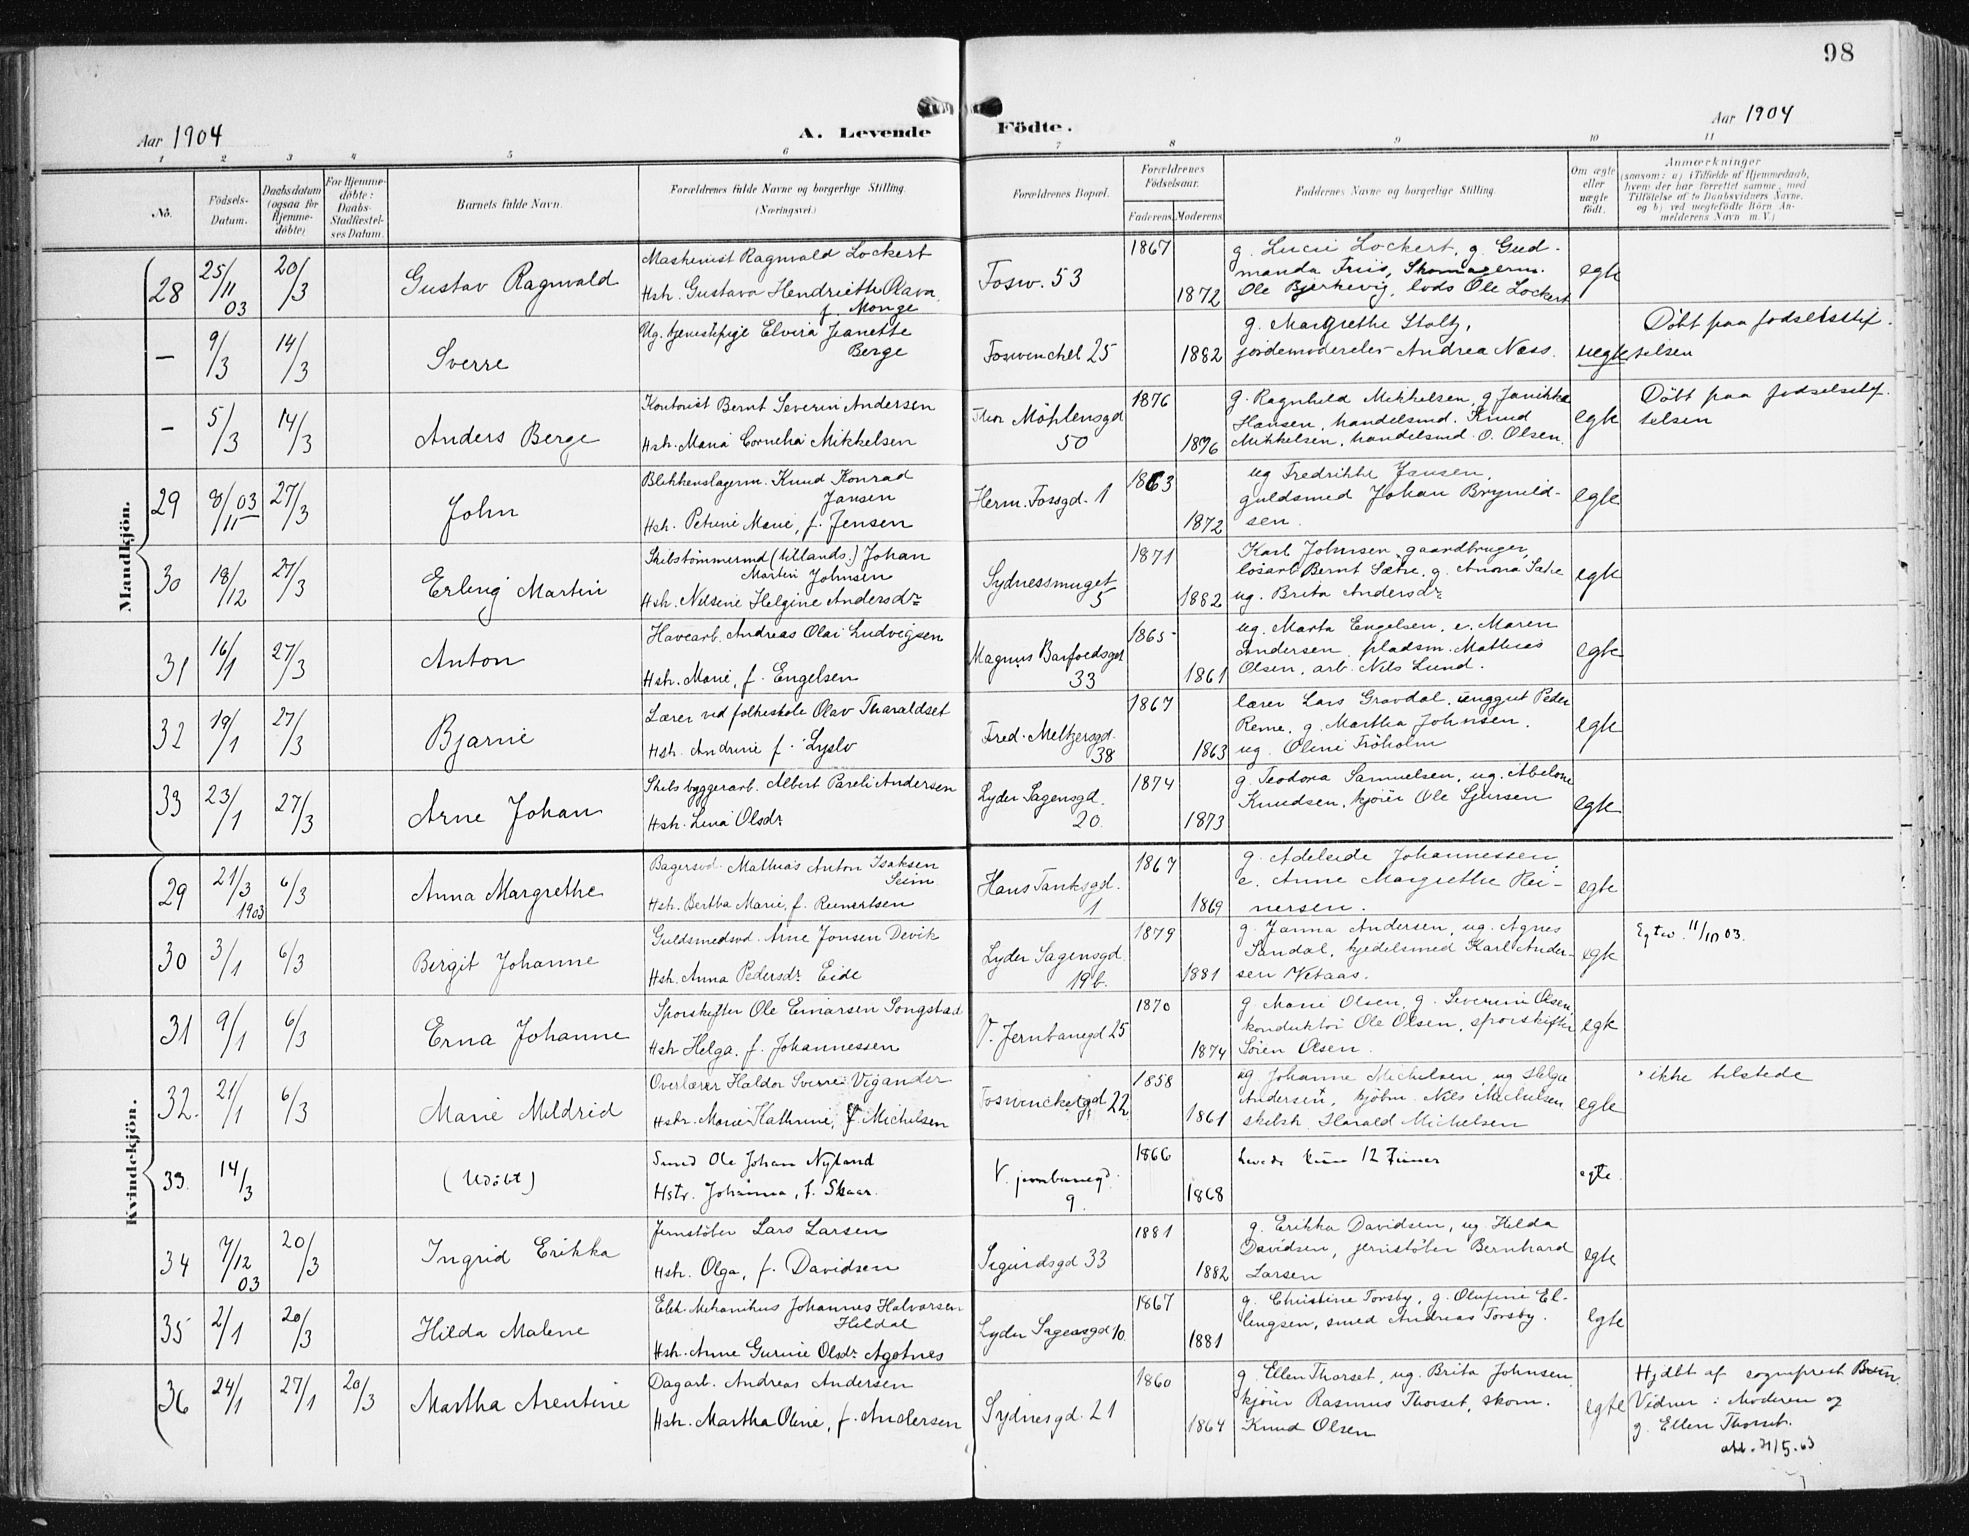 98
Aar 1904
A. Levende Födte.
Aar 1904
1 2 3 4 5 6 7 8 9 10 11
No.
Födsels-Datum.
Daabsdatum (ogsaa for Hjemme-döbte)
For Hjemme-döbte: Daabs-Stadfæstel-ses Datum.
Barnets fulde Navn.
Forældrenes fulde Navne og borgerlige Stilling.
(Næringsvei.)
Forældrenes Bopæl.
Forældrenes Födselsaar.
Faderens Moderens
Faddernes Navne og borgerlige Stilling.
Om ægte eller uægte födt.
Anmærkninger
(saasom: a) i Tilfælde af Hjemmedaab,
hvem der har forrettet samme, med
Tilföielse af to Daabsvidners Navne,
og b) ved uægtefödte Börn An-
melderens Navn m. V.)
Mandkjön.
28 25/11 03 20/3 Gustav Ragnvald
Maskinist Ragnvald Lockert
Hstr. Gustava Hendriette Rava
f. Monge
Fosw. 53
1867
1872
g. Lucie Lockert, g. Gud-
manda Friis, Skomagerm.
Ole Bjerkevig, lods Ole Lockert
egte
— 9/3 14/3 Sverre
Ug. tjenestepige Elvira Jeanette
Berge
Foswinckel 25
1882
g. Margrethe Stoltz,
jordemoderelev Andrea Næss.
uegte
Döbt paa fodselsstif-
telsen
— 5/3 14/3 Anders Berge
Kontorist Bernt Severin Andersen
Hstr. Maria Cornelia Mikkelsen
Möhlensgd
50
1876
1876
g. Ragnhild Mikkelsen, g Janikka
Hansen, handelsmd. Knud
Mikkelsen, handelsmd. O. Olsen.
egte
Döbt paa fodselsstif-
telsen
29 8/11 03 27/3 John
Blikkenslagerm. Knud Konrad
Jansen
Hstr. Petrine Marie, f. Jensen
Herm. Fossgd. 1
1863
1872
ug Fredrikke Jansen,
guldsmed Johan Brynild-
sen.
egte
30 18/12 27/3 Erling Martin
Skibstömmermd (tillands.) Johan
Martin Johnsen
Hstr. Nilsine Helgine Andersdr
Sydnessmuget
5
1871
1882
Karl Johnsen, gaardbruger,
lösarb Bernt Sætre, g. Anna Satre
ug. Brita Andersdr.
egte
31 16/1 27/3 Anton
Havearb. Andreas Olai Ludvigsen
Hstr. Marie, f. Engelsen
Magnus Barfoedsgd
33
1865
1861
ug. Marta Engelsen, e. Maren
Andersen, pladsm. Mathias
Olsen, arb. Nils Lund.
egte
32 19/1 27/3 Bjarne
Lærer ved folkeskole Olav Tharaldset
Hstr. Andrine f. Lyslo
Fred. Meltzersgd.
38
1867
1863
lærer Lars Gravdal, unggut Peder
Reme, g. Martha Johnsen.
ug. Oline Fröholm
egte
33 23/1 27/3 Arne Johan
Skibsbyggerarb. Albert Pareli Andersen
Hstr. Lina Olsdr
Lyder Sagensgd.
20.
1874
1873
g. Teodora Samuelsen, ug. Abelone
Knudsen, kjörer Ole Sjursen
egte
Kvindekjön.
29 21/3 1903 6/3 Anna Margrethe
Bagersvd. Mathias Anton Isaksen
Seim
Hstr. Bertha Marie, f. Reinertsen
Hans Tanksgd.
1
1867
1869
g. Adelside Johannessen,
e. Anne Margrethe Rei-
nersen.
egte
30 3/1 6/3 Birgit Johanne
Guldsmedsvd. Arne Jonsen Devik
Hstr. Anna Pedersdr Eide
Lyder Sagensgd.
19b.
1879
1881
g. Janna Andersen, ug. Agnes
Sandal, kjedelsmed Karl Ander-
sen Vebaas.
egte
Egtev. 11/10 03.
31 9/1 6/3 Erna Johanne
Sporskifter Ole Einarsen Songstad
Hstr Helga, f. Johannessen
V. Jernbanegd 25
1870
1874
g Marie Olsen, g. Severine Olsen,
konduktör Ole Olsen, sporskifter
Sören Olsen.
egte
32. 21/1 6/3 Marie Mildrid
Overlærer Haldor Sverre Vigander
Hstr. Marie Kathrine, f. Michelsen
Foswinckelgd 22
1858
1861
ug Johanne Michelsen, ug Helga
Andersen, kjöbm. Nils Michelsen
skibsh. Harald Michelsen
egte
ikke tilstede
33. 14/3 (Udöbt)
Smed Ole Johan Nyland
Hstr. Johanna, f. Skaar.
V. jernbanegd.
9.
1866
1868
Levede kun 12 Timer
egte.
34 7/12 03 20/3 Ingrid Erikka
Jernstöber Lars Larsen
Hstr. Olga, f. Davidsen
Sigurdsgd 33
1881
1882
g. Erikka Davidsen, ug. Hilda
Davidsen, jernstöber Bernhard
Larsen
egte
35 2/1 20/3 Hilda Malene
Elek. Mekanikus Johannes Halvorsen
Hildal
Hstr. Anne Gurine Olsdr. Agotnes
Lyder Sagensgd 10
1867
1881
g. Christine Torsby, g. Olufine El-
lingsen, smed Andreas Torsby.
egte
36 24/1 27/1 20/3 Martha Arentine
Dagarb. Andreas Andersen
Hstr. Martha Oline, f. Andersen
Sydnesgd. 21
1860
1864
g. Ellen Thorset, ug. Brita Johnsen,
kjörer Rasmus Thorset, skom.
Knud Olsen
egte
Hjdbt af sogneprest Bruun.
Vidner: Moderen og
g. Ellen Thorset.
att. 21/5.63